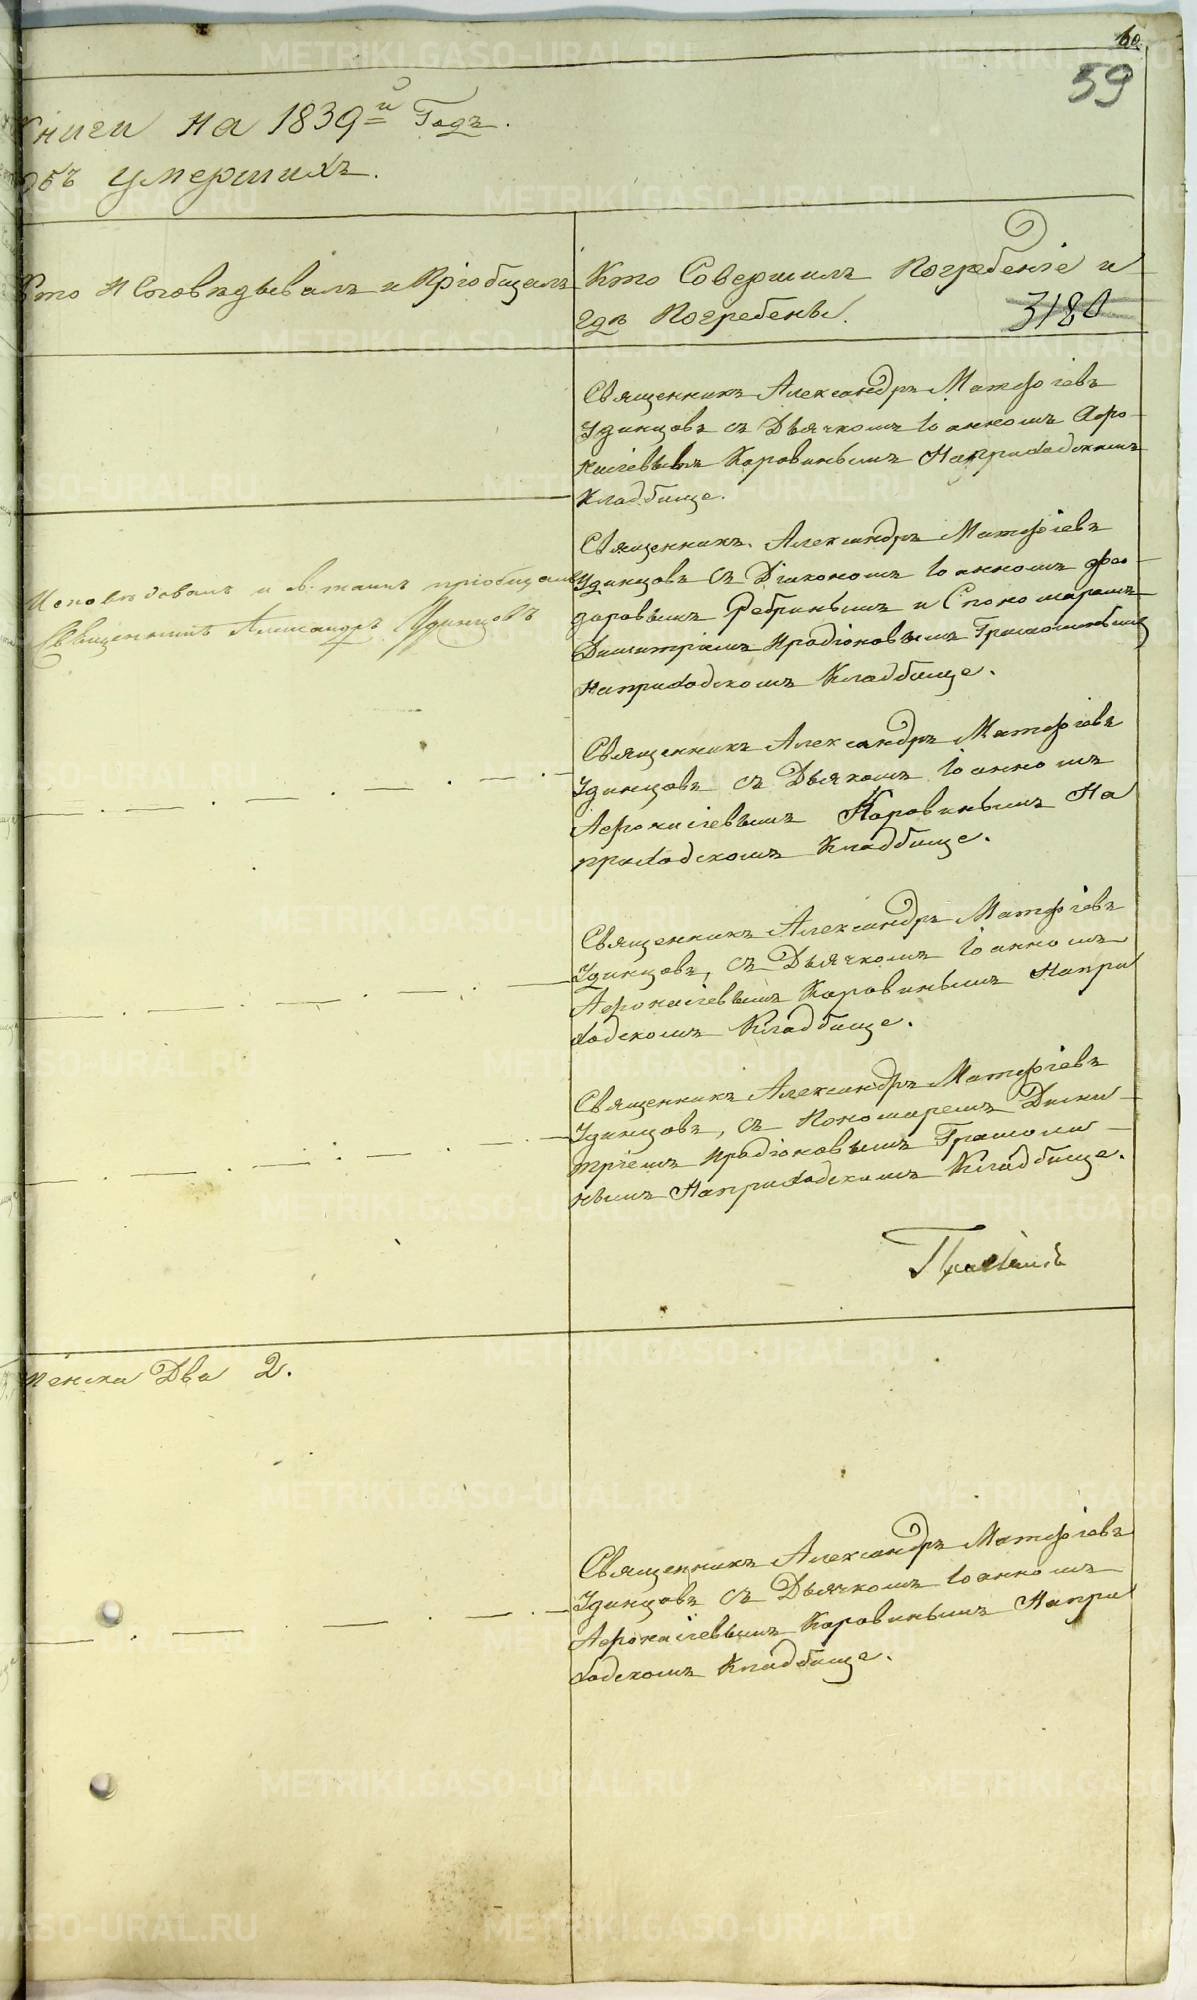 60
59
Книги на 1839й Годъ.
объ умершихъ.
Кто Исповѣдывалъ и Пріобщалъ
Кто Совершилъ Погребеніе и
гдѣ Погребены.
3180
Священникъ Александръ Матфіевъ
Удинцовъ съ Дьячкомъ Іоанномъ Афо-
насіевымъ Коровинымъ На приходскомъ
Кладбище.
Исповѣдовалъ и св. таинъ пріобщалъ
Священникъ Александръ Удинцовъ
Священникъ Александръ Матфіевъ
Удинцовъ съ Діакономъ Іоанномъ Фео-
доровымъ Ребринымъ и С пономаремъ
Димитріемъ Иродіоновымъ
На приходскомъ Кладбище.
Священникъ Александръ Матфіевъ
Удинцовъ съ Дьячкомъ Іоанномъ
Афонасіевымъ Коровинымъ На
приходскомъ Кладбище.
Священникъ Александръ Матфіевъ
Удинцовъ, съ Дьячкомъ Іоанномъ
Афонасіевымъ Коровинымъ На при
ходскомъ Кладбище.
Священникъ Александръ Матфіевъ
Удинцовъ, съ Пономаремъ Дими-
тріемъ Иродіоновымъ
На приходскомъ Кладбище.
женска Два 2.
Священникъ Александръ Матфіевъ
Удинцовъ съ Дьячкомъ Іоанномъ
Афонасіевымъ Коровинымъ На при
ходскомъ Кладбище.
METRIKI.GASO-URAL.RU